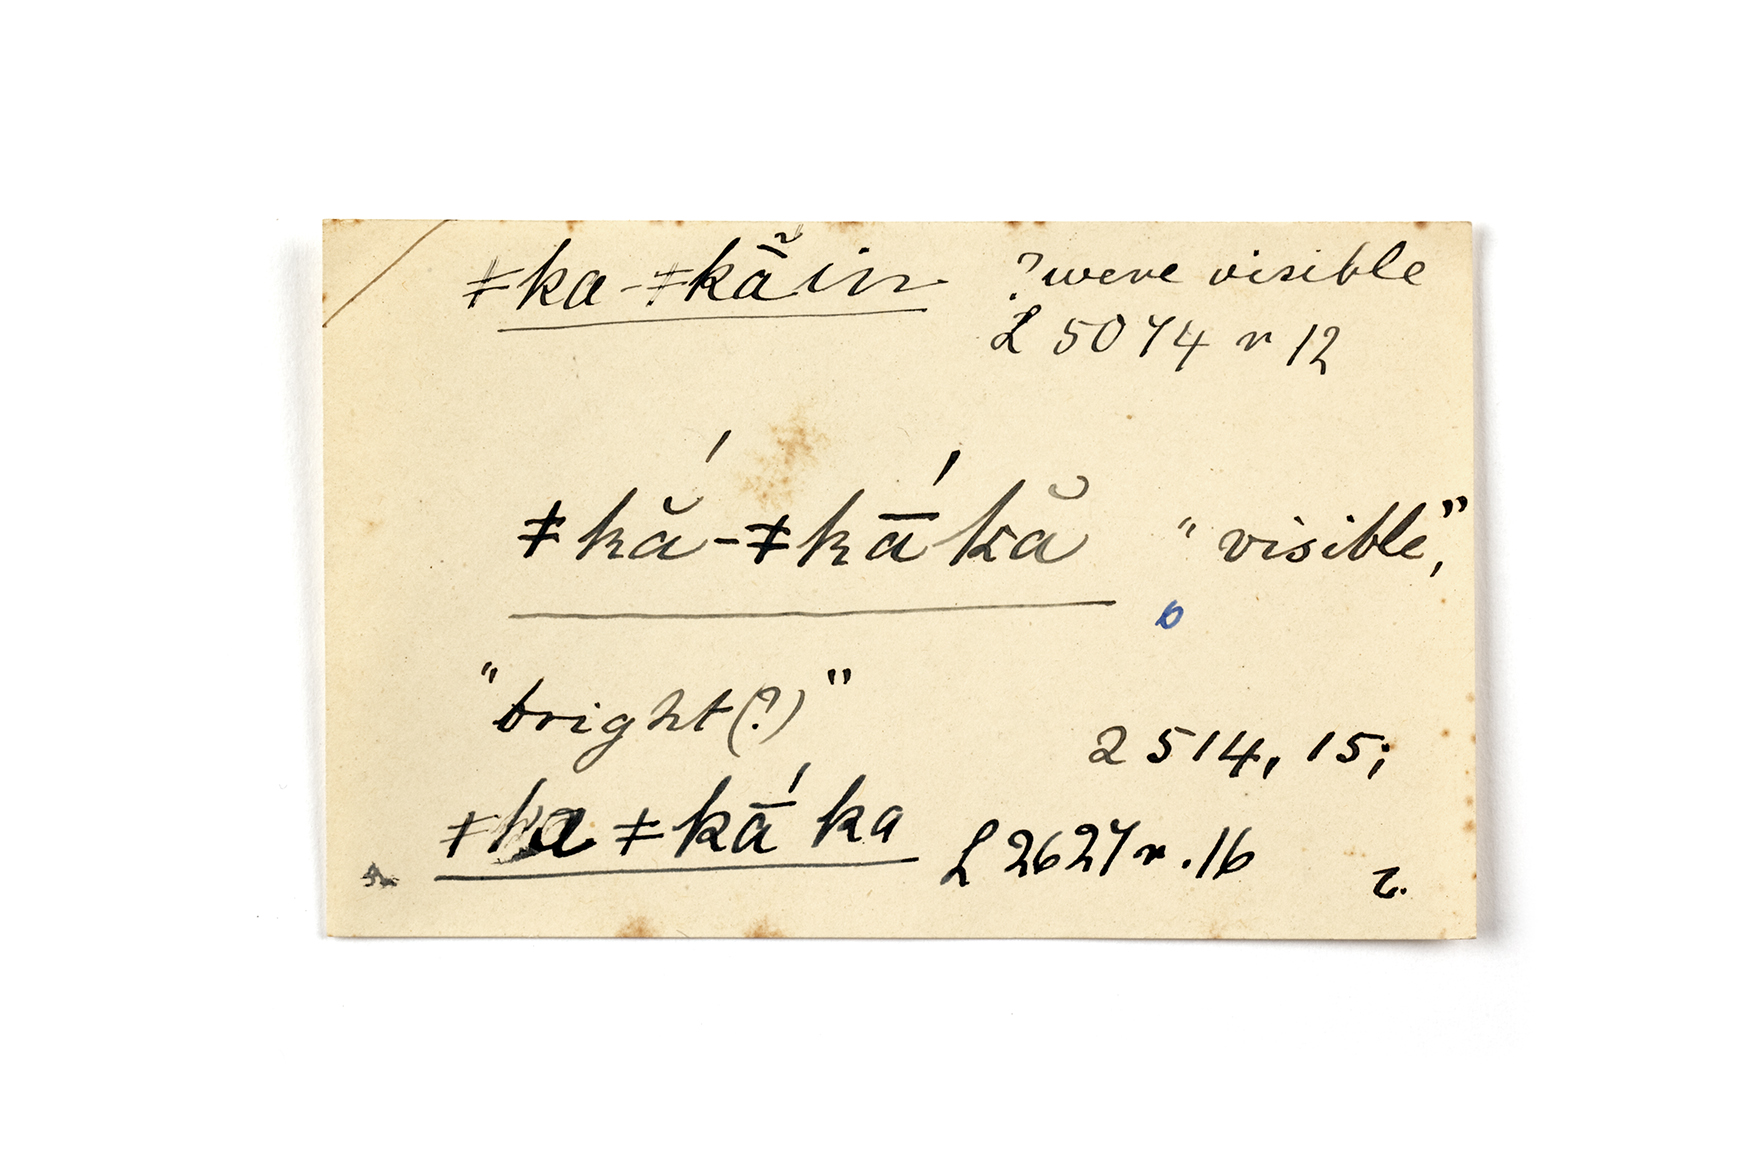 ǂka-ǂkā̃in ?were visible
L 5074 r 12
ǂkắ-ǂkā́kă "visible,"
6
"bright(?)"
2514, 15;
ǂka ǂkā́ ka L 2627 r. 16